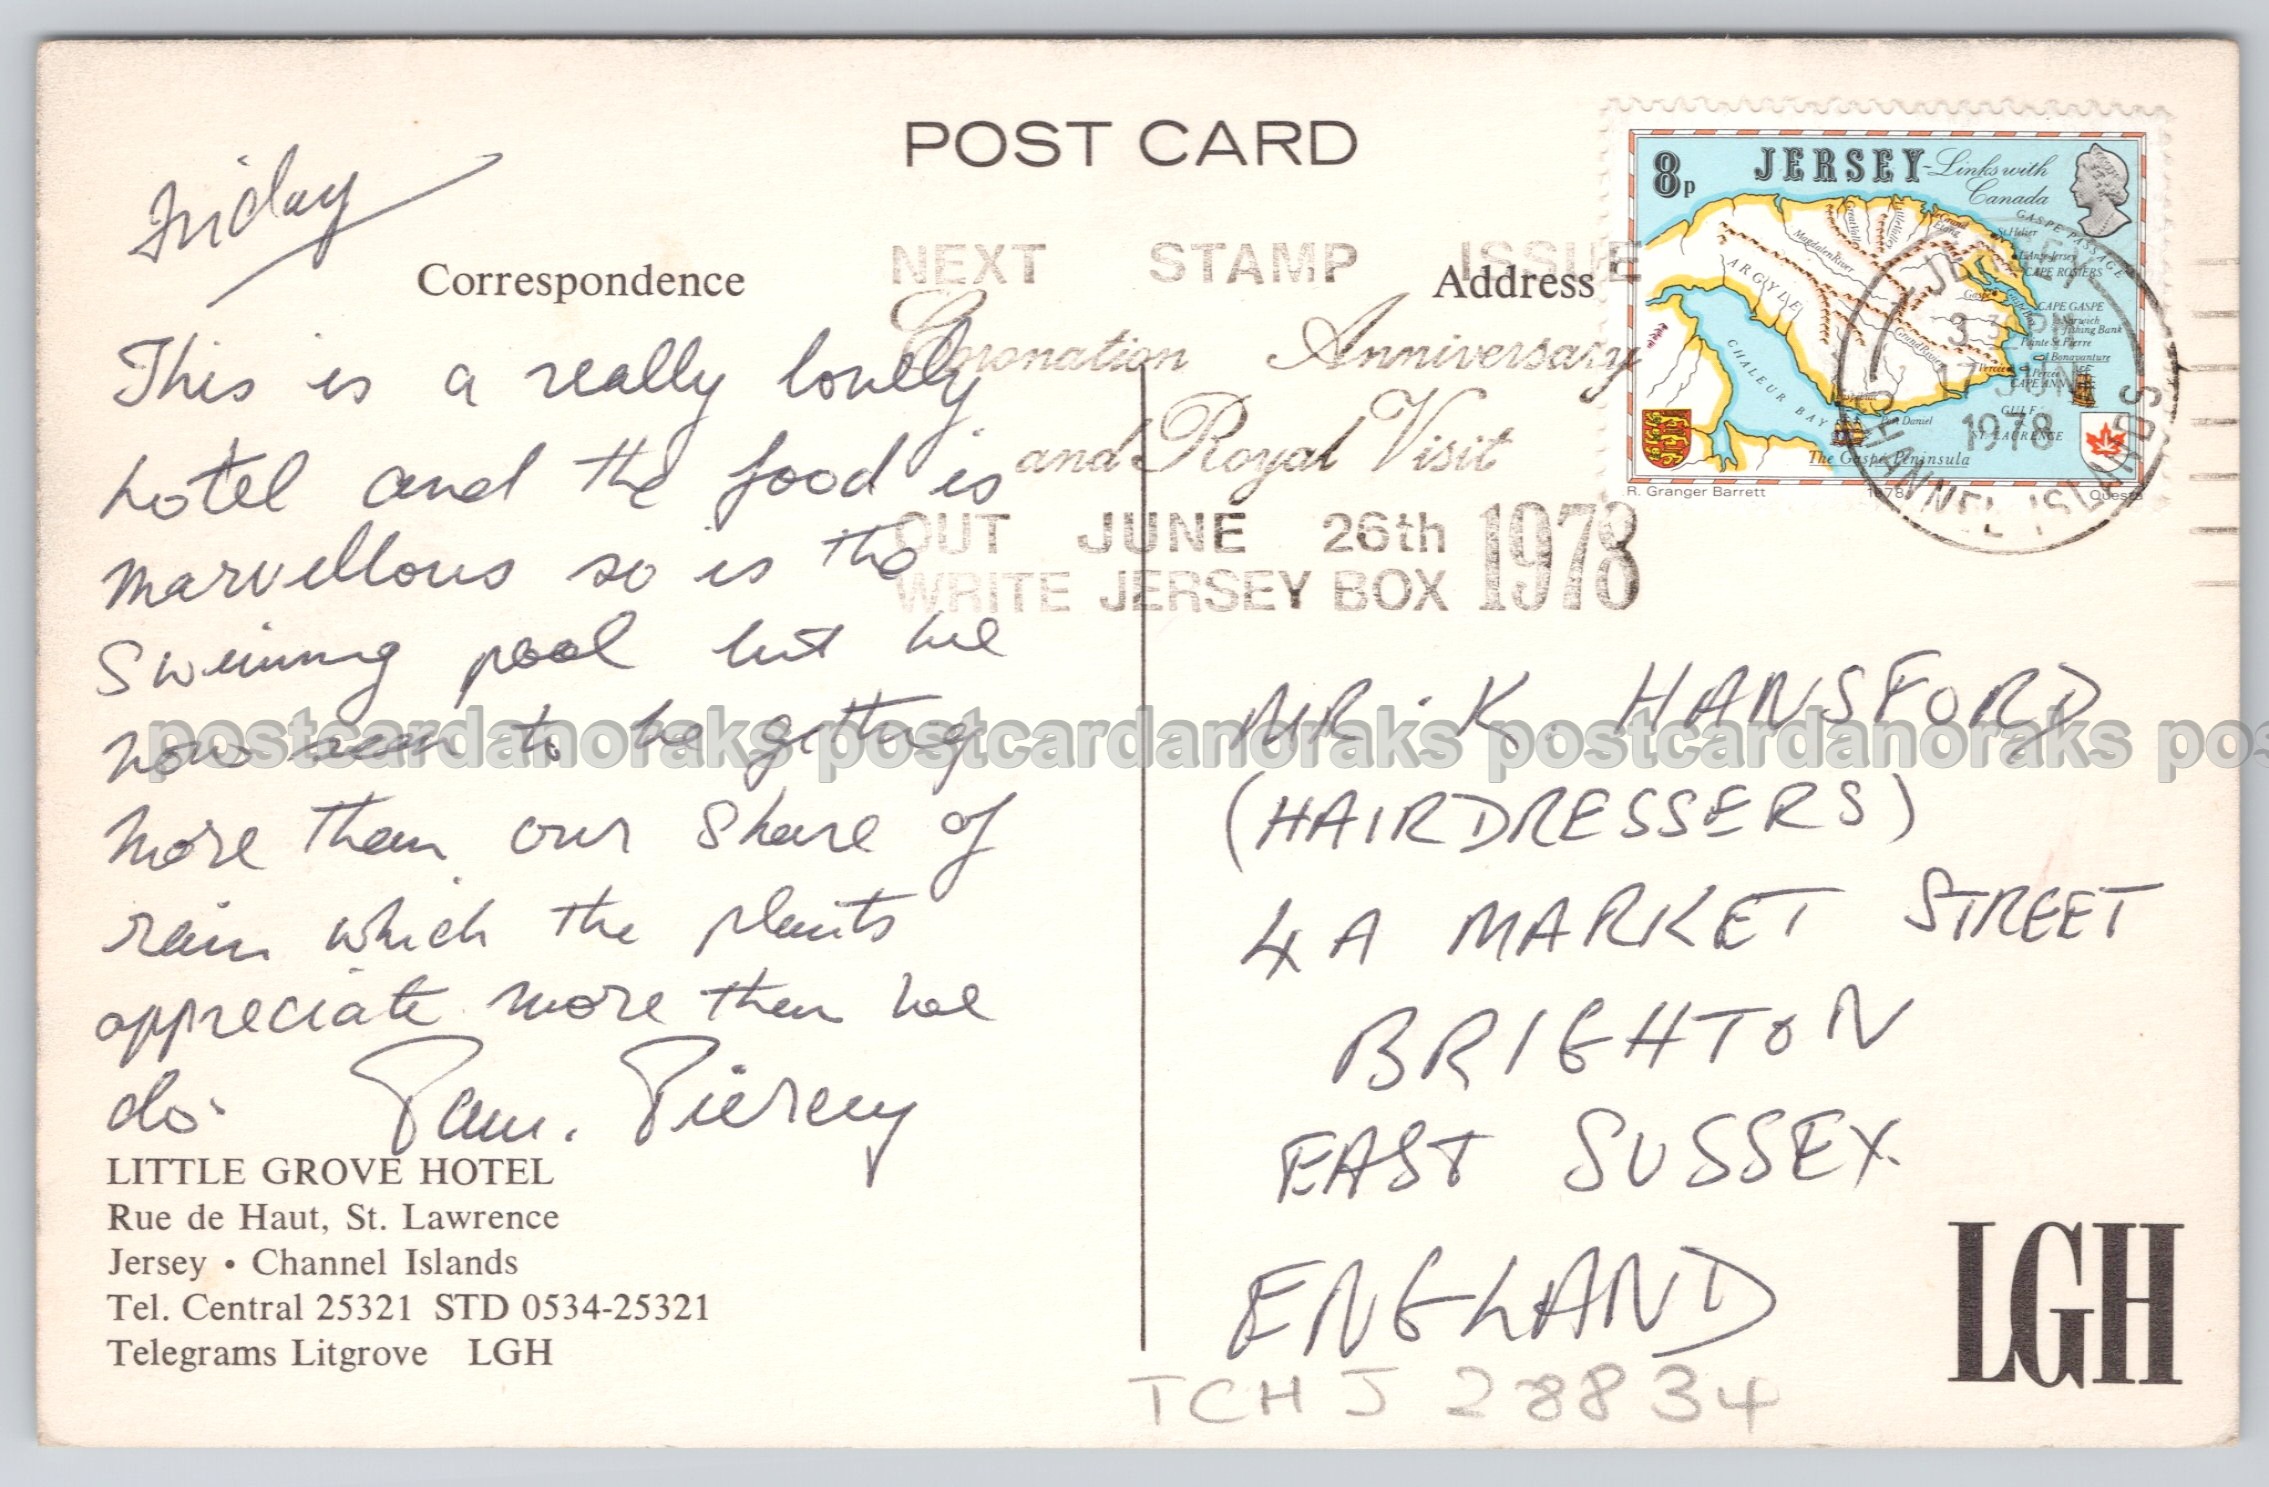 POST CARD
Friday
Correspondence
Address
This is a really lovely
hotel and the food is
marvellous so is the
Swimming pool but we
now seem to be getting
more than our share of
rain which the plants
appreciate more than we
do.
Pam. Piercey
LITTLE GROVE HOTEL
Rue de Haut, St. Lawrence
Jersey • Channel Islands
Tel. Central 25321 STD 0534-25321
Telegrams Litgrove LGH
NEXT STAMP ISSUE
Coronation Anniversary
and Royal Visit
OUT JUNE 26th 1978
WRITE JERSEY BOX
8p JERSEY-Links with
Canada
GASPE PASSAGE
St. Helier
L'Anse Jersey
CAPE ROSIERS
Magdalen River
ARGYLE
CAPE GASPE
Norwich
Fishing Bank
Pointe St. Pierre
Bonavanture
Grand River
Percee
CAPE ANN
CHALEUR BAY
GULF
Port Daniel
ST. LAURENCE
The Gaspe Peninsula
R. Granger Barrett 1978 Questa
JERSEY
JUN
1978
CHANNEL ISLANDS
MR. K. HANSFORD
(HAIRDRESSERS)
4A MARKET STREET
BRIGHTON
EAST SUSSEX.
ENGLAND
LGH
TCH J 28834
postcardanoraks postcardanoraks postcardanoraks pos